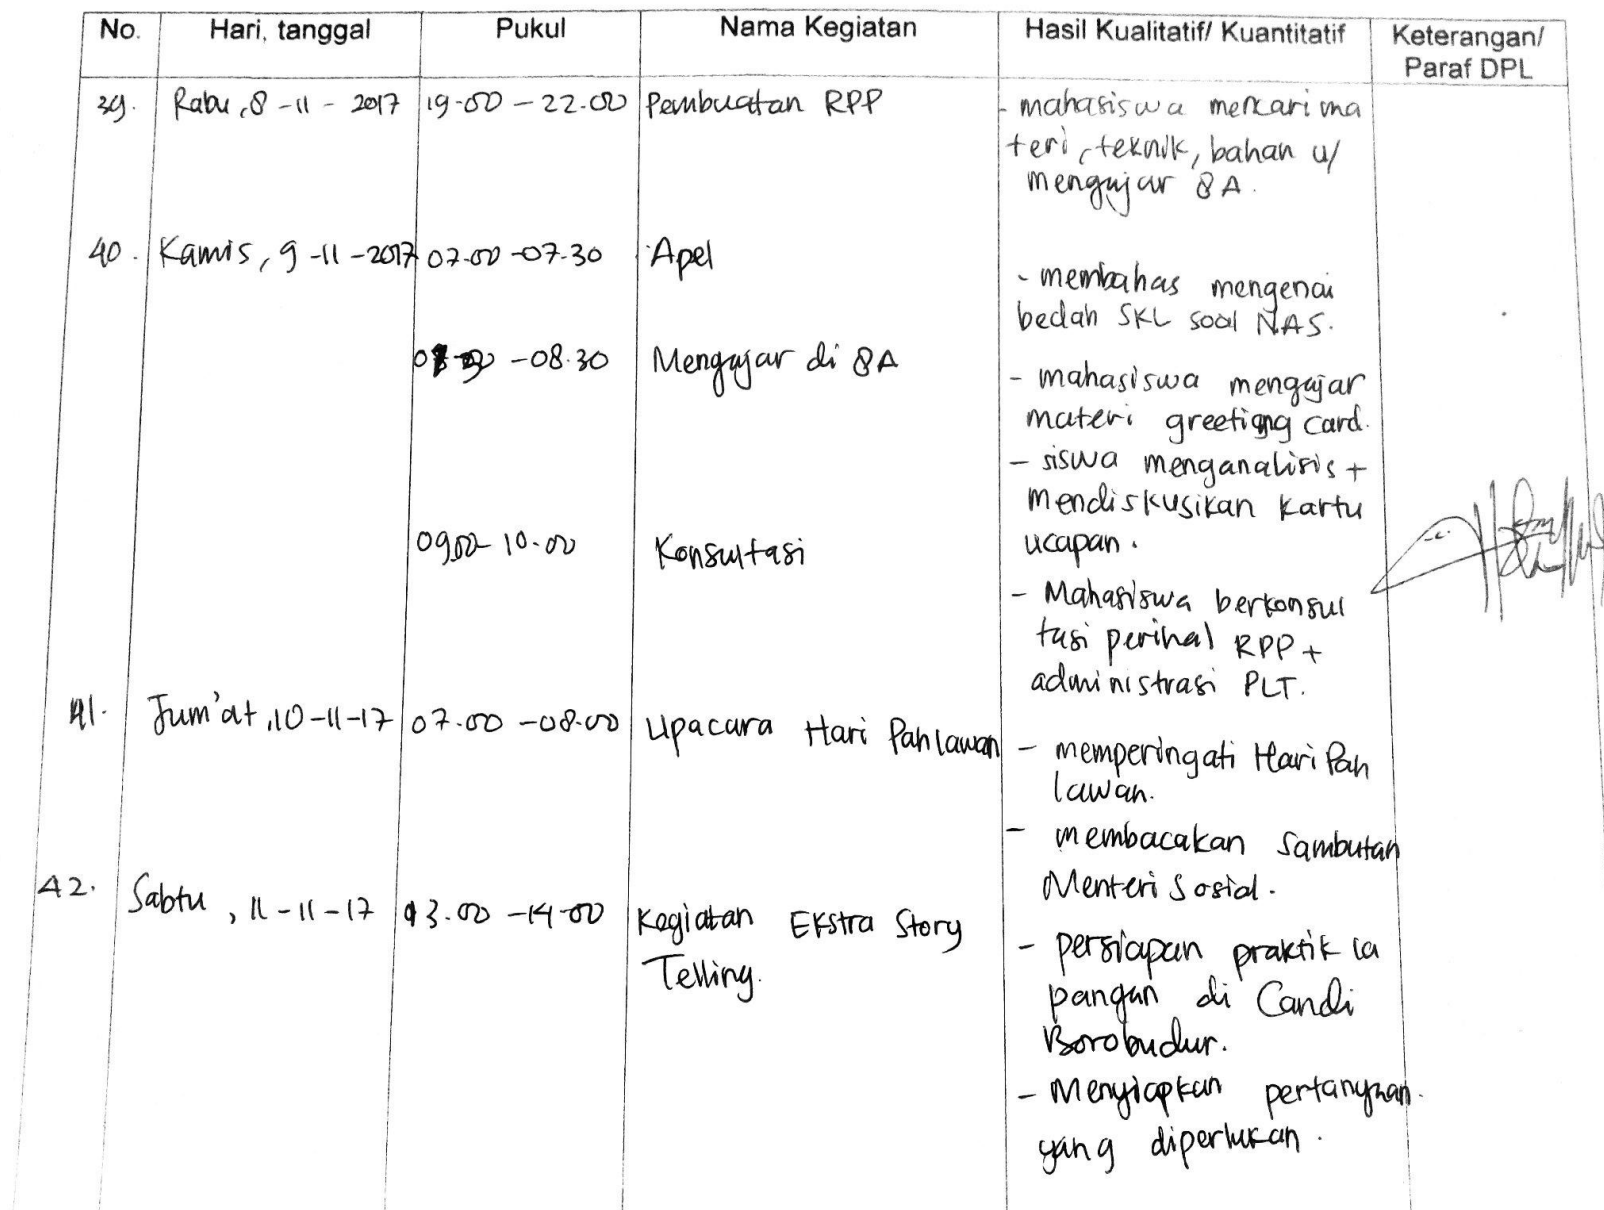 No. Hari, tanggal Pukul Nama Kegiatan Hasil Kualitatif/ Kuantitatif Keterangan/
Paraf DPL
39. Rabu, 8 - 11 - 2017 19.00 - 22.00 Pembuatan RPP - mahasiswa mencari ma
teri, teknik, bahan u/
mengajar 8A.
40. Kamis, 9 - 11 - 2017 07.00 - 07.30 Apel
- membahas mengenai
bedah SKL soal NAS.
- 08.30 Mengajar di 8A
- mahasiswa mengajar
materi greeting card.
- siswa menganalisis +
mendiskusikan kartu
09.00 - 10.00 Konsultasi ucapan.
- Mahasiswa berkonsul
tasi perihal RPP +
administrasi PLT.
41. Jum'at, 10 - 11 - 17 07.00 - 08.00 Upacara Hari Pahlawan
- memperingati Hari Pah
lawan.
- membacakan Sambutan
Menteri Sosial.
42. Sabtu, 11 - 11 - 17 13.00 - 14.00 Kegiatan Ekstra Story
Telling.
- persiapan praktik la
pangan di Candi
Borobudur.
- Menyiapkan pertanyaan
yang diperlukan.